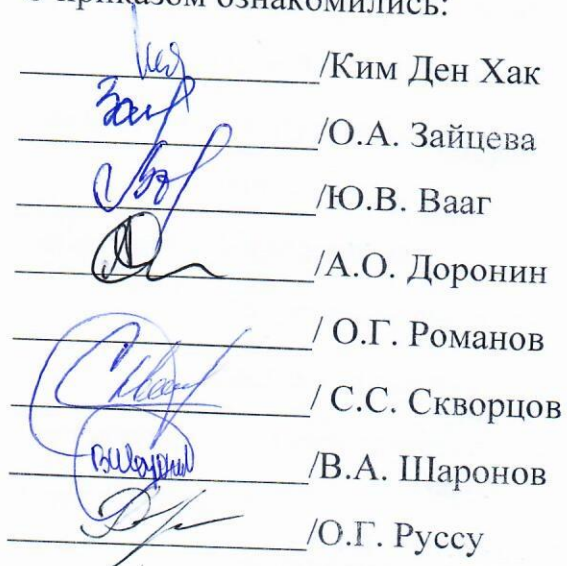 приказом ознакомились:
/Ким Ден Хак
/О.А. Зайцева
/Ю.В. Вааг
/А.О. Доронин
/ О.Г. Романов
/ С.С. Скворцов
/В.А. Шаронов
/О.Г. Руссу